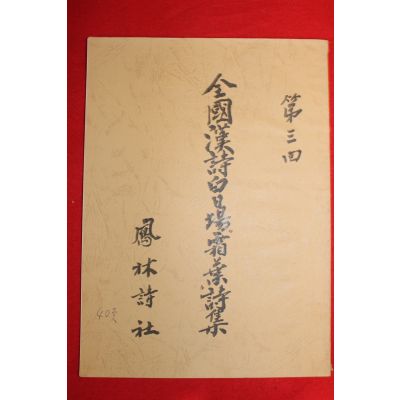 第三回
全國漢詩白日場霜葉詩集
鳳林詩社